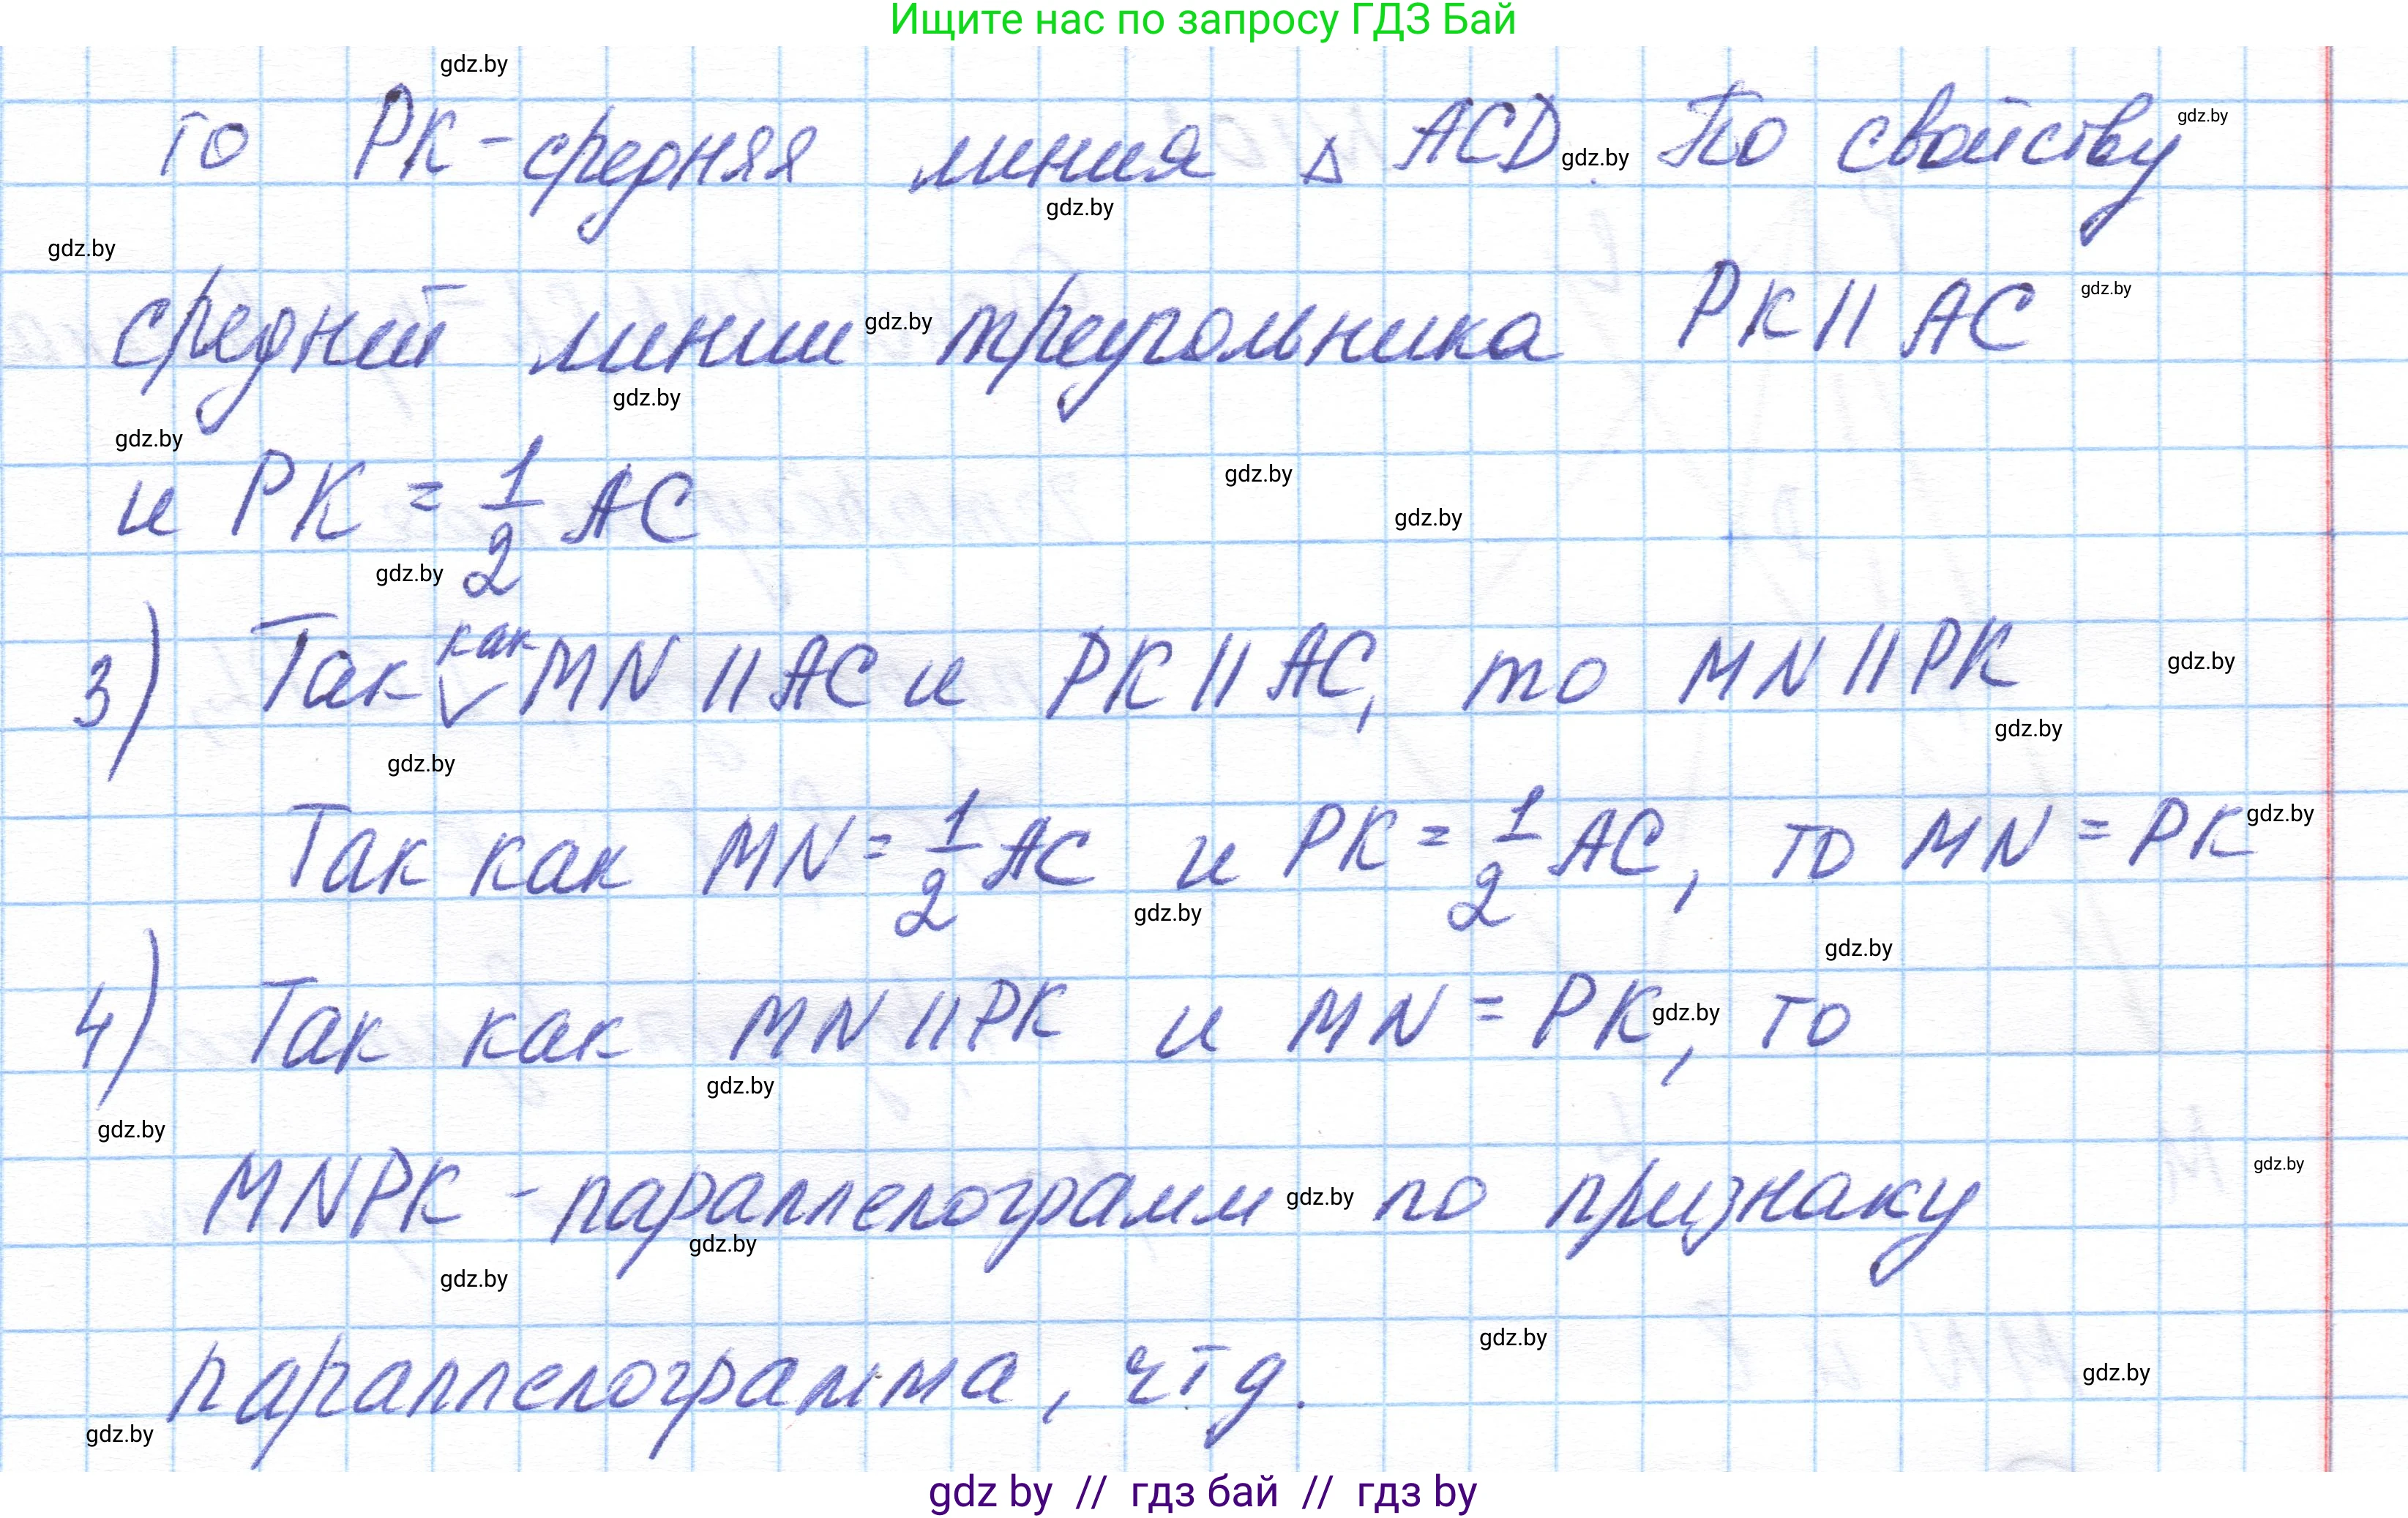 Ищите нас по запросу ГДЗ Бай
gdz.by
то PK-средняя линия △ ACD. По свойству
gdz.by
gdz.by
gdz.by
gdz.by
средней линии треугольника PK || AC
gdz.by
gdz.by
gdz.by
gdz.by
и PK = 1/2 AC
gdz.by
gdz.by
gdz.by
как
3) Так ✓ MN || AC и PK || AC, то MN || PK
gdz.by
gdz.by
gdz.by
Так как MN = 1/2 AC и PK = 1/2 AC, то MN = PK
gdz.by
gdz.by
gdz.by
4) Так как MN || PK и MN = PK, то
gdz.by
gdz.by
gdz.by
MNPK - параллелограмм по признаку
gdz.by
gdz.by
gdz.by
gdz.by
gdz.by
параллелограмма, чтд.
gdz.by
gdz.by
gdz by // гдз бай // гдз by